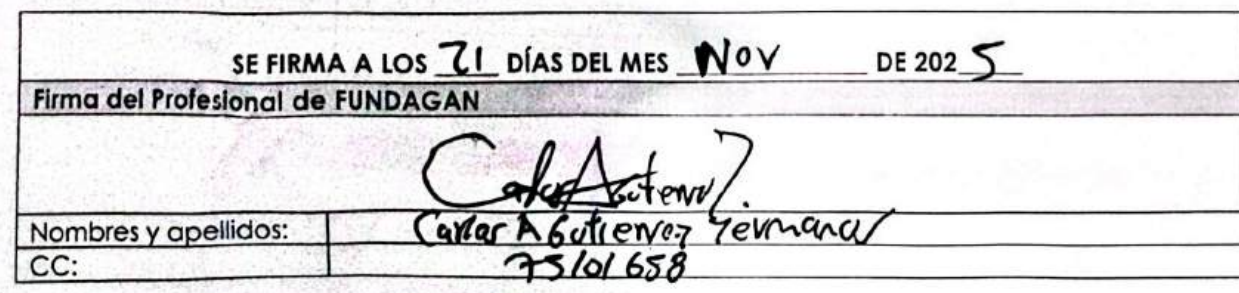 SE FIRMA A LOS 21 DÍAS DEL MES Nov DE 2025
Firma del Profesional de FUNDAGAN
Nombres y apellidos: Carlos A Gutierrez
CC: 75101658